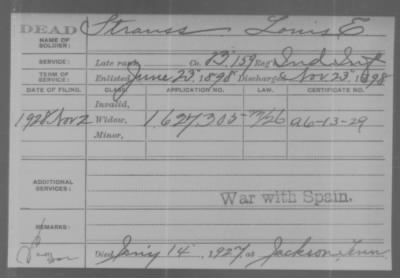 DEAD
NAME OF SOLDIER: Strauss Louis E.
SERVICE: Late rank, Co. B, 159 Reg't Ind Inf
TERM OF SERVICE: Enlisted June 23" 1898 Discharged Nov 23" 1898
DATE OF FILING. CLASS. APPLICATION NO. LAW. CERTIFICATE NO.
Invalid,
1928 Nov 2 Widow, 1.627,305
Minor,
ADDITIONAL SERVICES:
War with Spain.
REMARKS:
Died 14, 1927, at Jackson, Tenn